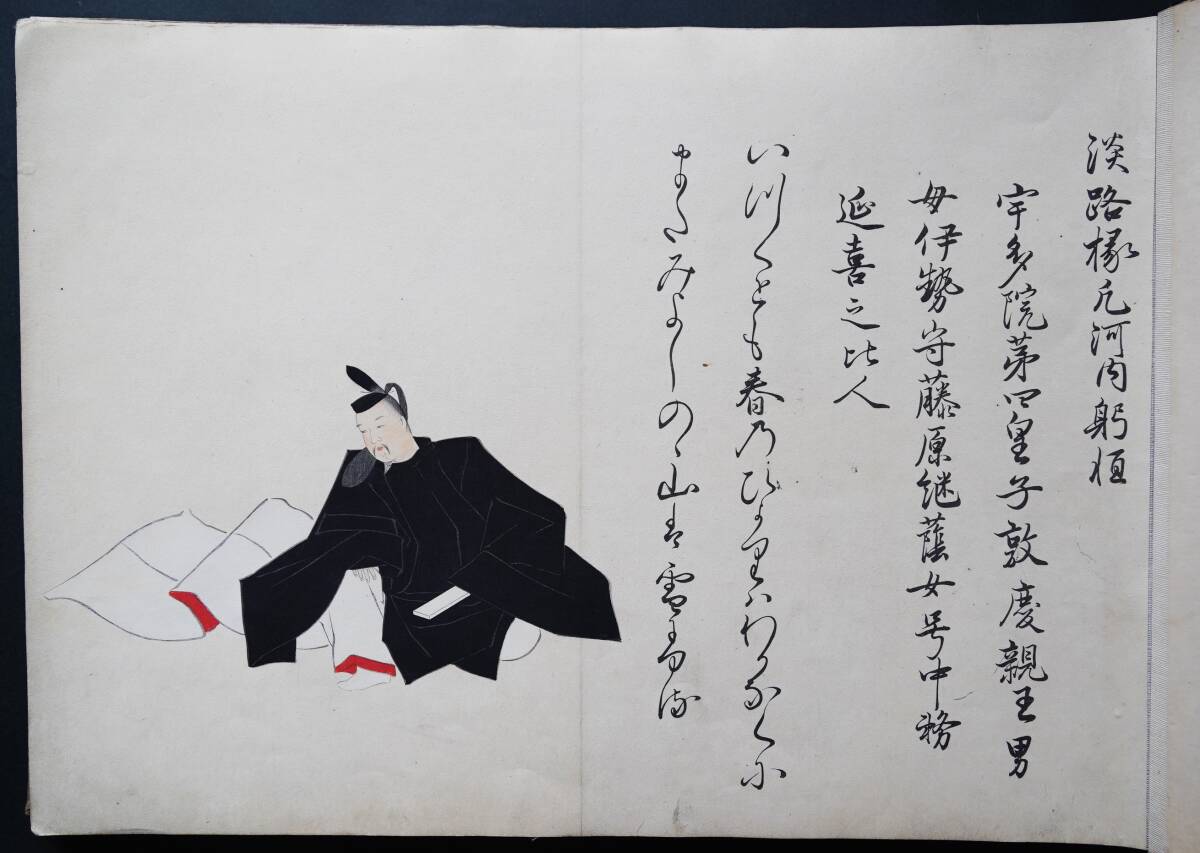 淡路掾凡河内躬恒
宇多院第四皇子敦慶親王男
母伊勢守藤原継蔭女号中務
延喜之比人
い川くとも春乃ひかりハわかなくに
またみよしのゝ山は雪ふる